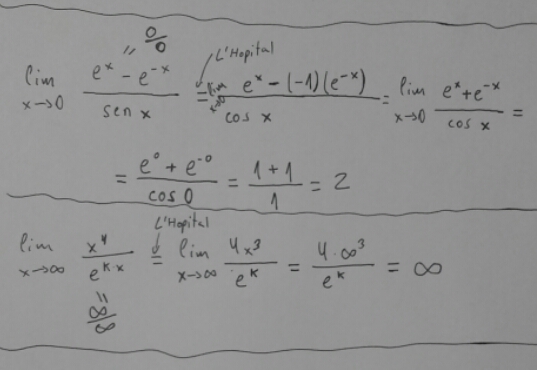 lim x→0 (e^x - e^-x)/(sen x) "0/0" = L'Hopital lim x→0 (e^x - (-1)(e^-x))/(cos x) = lim x→0 (e^x + e^-x)/(cos x) =
= (e^0 + e^-0)/(cos 0) = (1+1)/1 = 2
lim x→∞ x^4/e^(k·x) "∞/∞" = L'Hopital lim x→∞ 4x^3/e^k = 4·∞^3/e^k = ∞